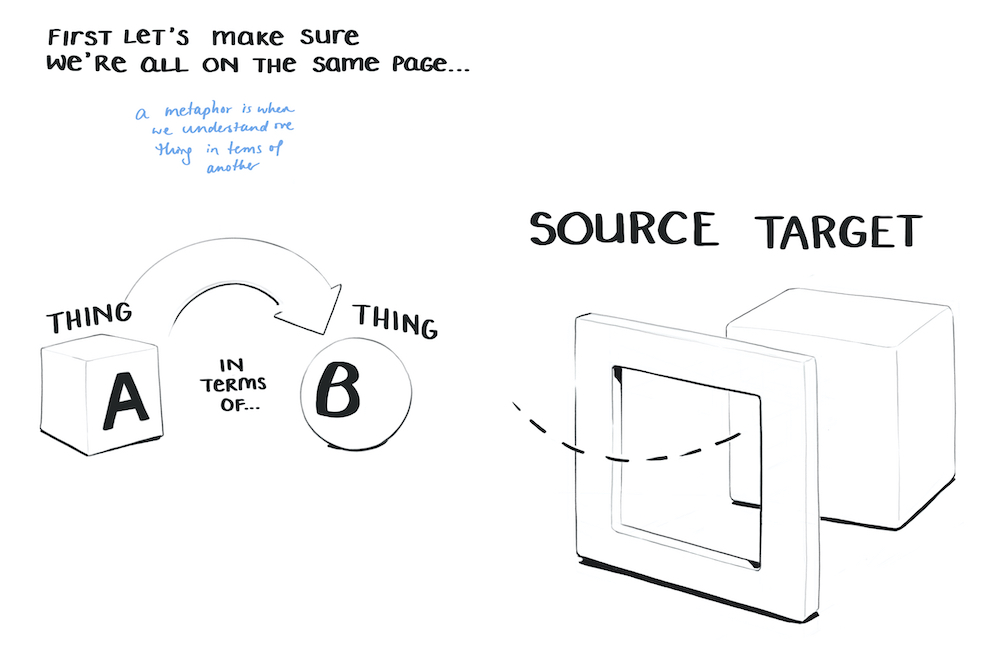 FIRST LET'S make sure
we're all on the same page...
a metaphor is when
we understand one
thing in tems of
another
THING
A
IN
TERMS
OF...
THING
B
SOURCE TARGET